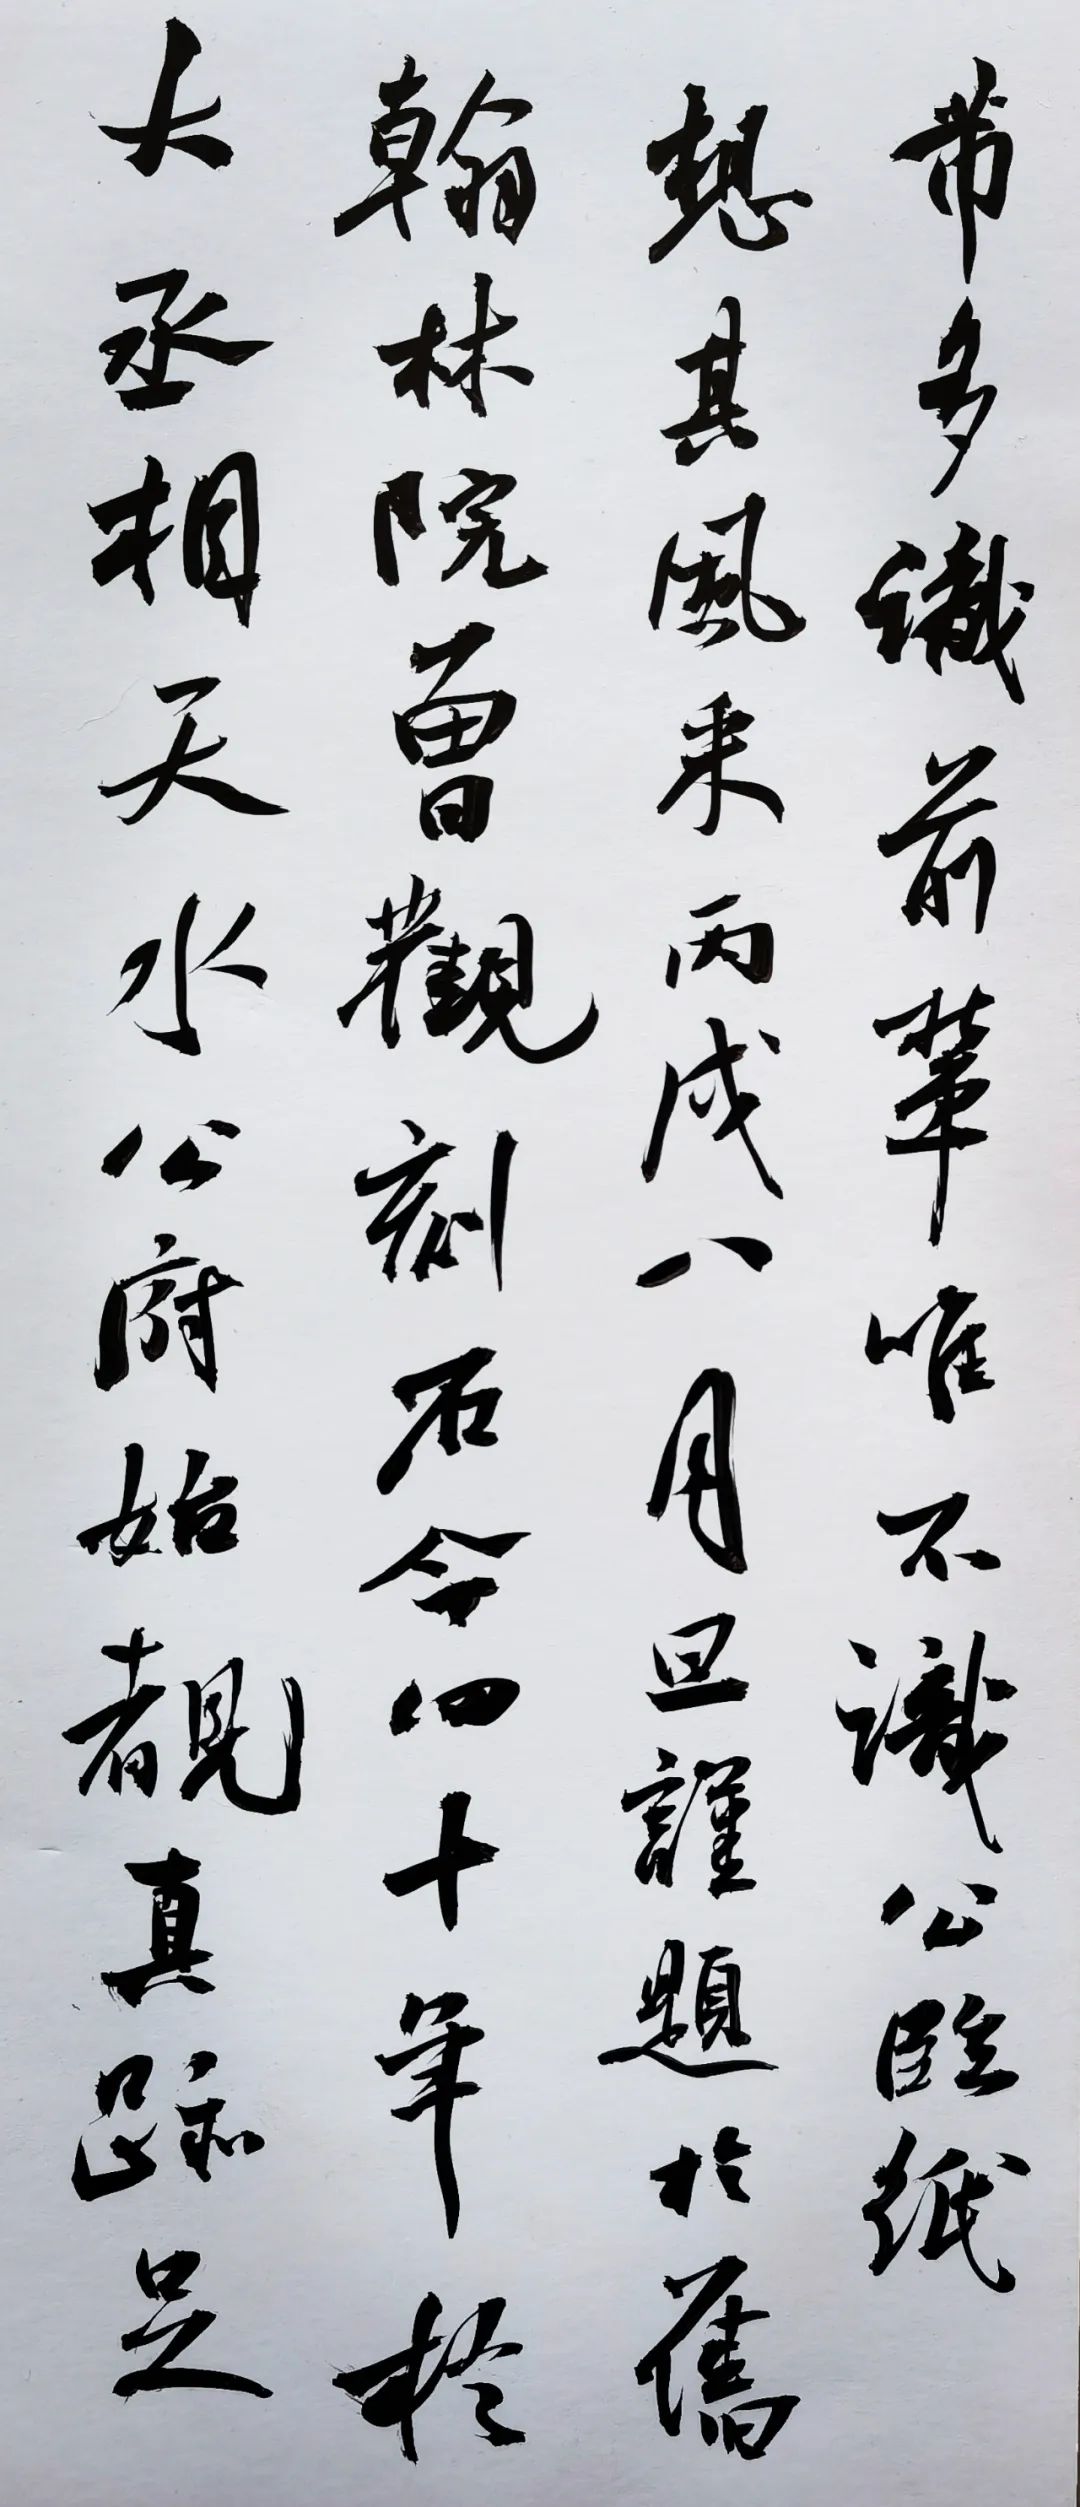 芾多識前輩唯不識公臨紙
想其風采丙戌八月旦謹題於舊
翰林院曾觀刻石今四十年於
大丞相天水公府始覩真跡足